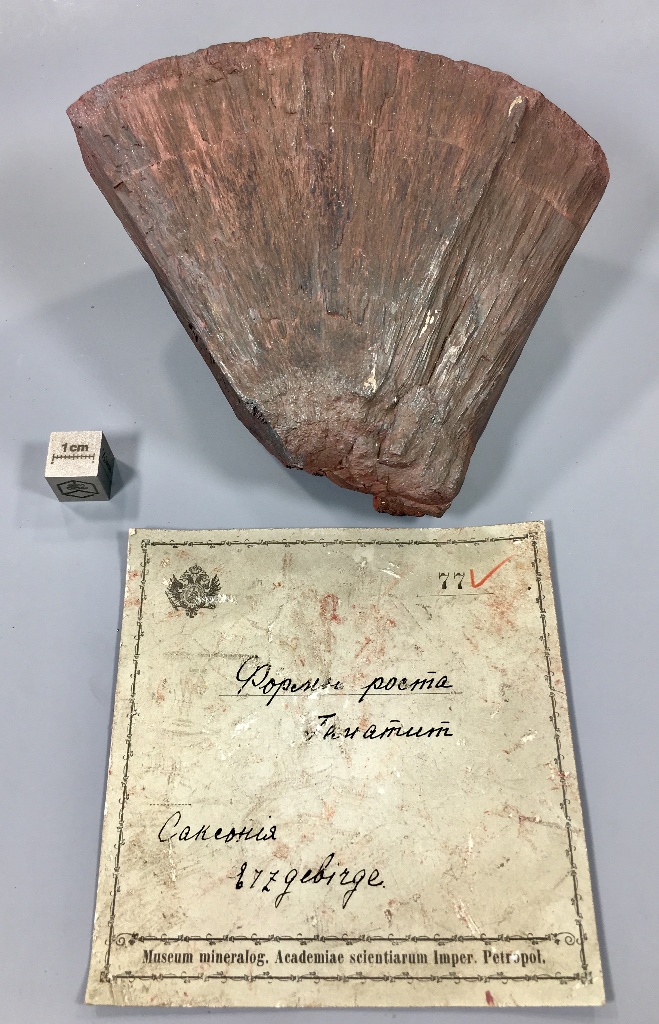 1cm
77
Формы роста
Гематит
Саксонія
Erzgebirge.
Museum mineralog. Academiae scientiarum Imper. Petropol.